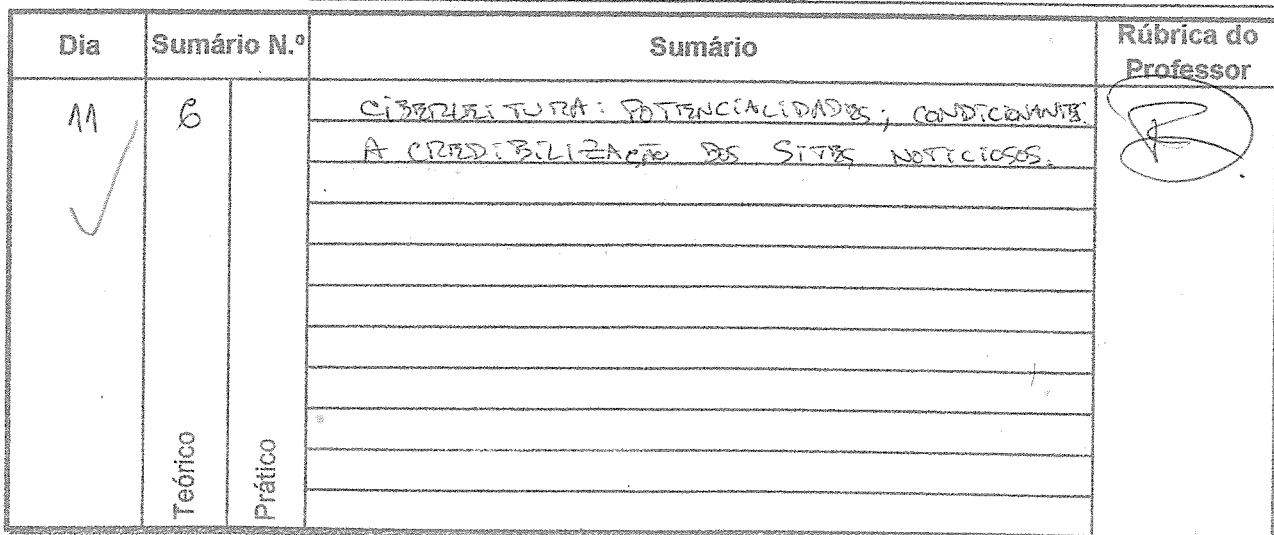 Dia Sumário N.º Sumário Rúbrica do
Professor
11 6 CIBERLEITURA: POTENCIALIDADES; CONDICIONANTES.
A CREDIBILIZAÇÃO DOS SITES NOTICIOSOS.
Teórico Prático